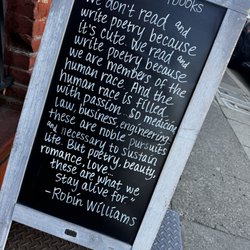 books
We don't read and
write poetry because
it's cute. We read and
write poetry because
we are members of the
human race. And the
human race is filled
with passion. so medicine,
law, business, engineering
these are noble pursuits
and necessary to sustain
life. But poetry, beauty,
romance, love...
these are what we
stay alive for"
-Robin Williams